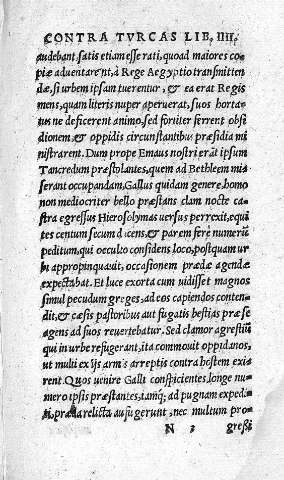 CONTRA TVRCAS LIB, IIII.
audebant, satis etiam esse rati, quoad maiores co-
piæ aduentarent, à Rege Aegyptio transmitten
dæ, si urbem ipsam tuerentur, & ea erat Regis
mens, quam literis nuper aperuerat, suos hortat
us ne deficerent animo, sed fortiter ferrent obsi
dionem & oppidis circunstantibus præsidia mi
nistrarent. Dum prope Emaus nostri erāt ipsum
Tancredum præstolantes, quem ad Bethleem mi
serant occupandam, Gallus quidam genere, homo
non mediocriter bello præstans clam nocte ca
stra egressus Hierosolymas uersus perrexit, equi
tes centum secum dicens, & parem ferè numerū
peditum, qui occulto considens loco, postquam ur
bi appropinquauit, occasionem prædæ agendæ
expectabat. Et luce exorta cum uidisset magnos
simul pecudum greges, ad eos capiendos conten-
dit, & cæsis pastoribus aut fugatis bestias præse
agens ad suos reuertebatur. Sed clamor agrestiū
qui in urbē refugerant, ita commouit oppidanos,
ut multi ex ijs armis arreptis contra hostem exi
rent. Quos uenire Galli conspicientes, longe nu-
mero ipsis præstantes, tamq; ad pugnam expedi-
ti, præda relicta aufugerunt, nec multum pro-
N 3 gressi